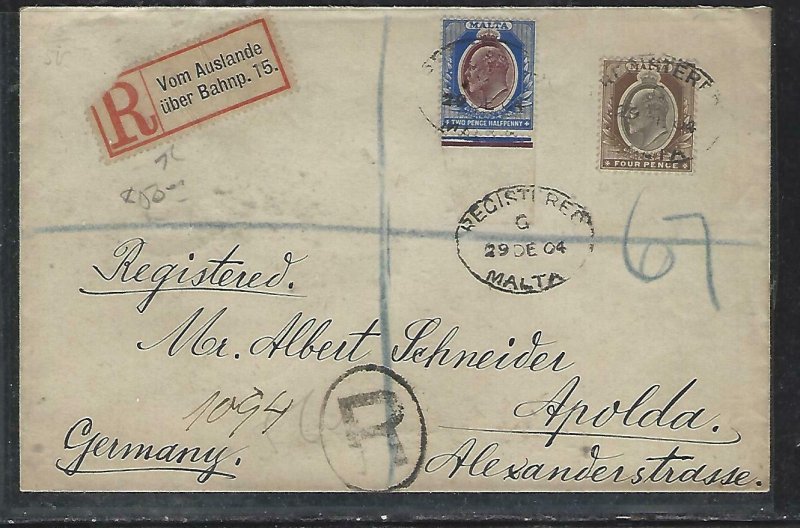 R
Vom Auslande
über Bahnp. 15.
MALTA
TWO PENCE HALFPENNY
REGISTERE
FOUR PENCE
REGISTERED
G
29 DE 04
MALTA
67
Registered.
Mr. Albert Schneider
1094
Apolda.
Germany.
Alexanderstrasse.
R